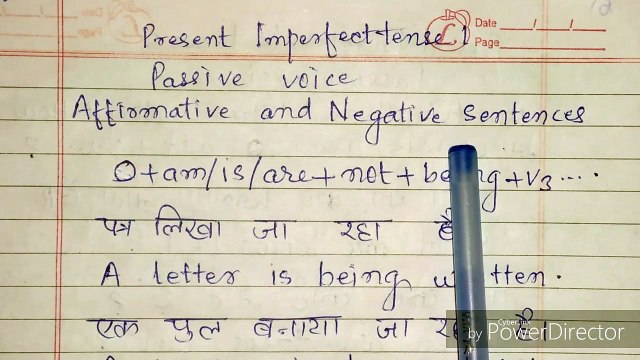 Date / /
Present Imperfect tense
Page
Passive voice
Affirmative and Negative Sentences
O+am/is/are+not+being+V3....
पत्र लिखा जा रहा है
A letter is being written.
एक पुल बनाया जा रहा है।
CyberLink
by PowerDirector